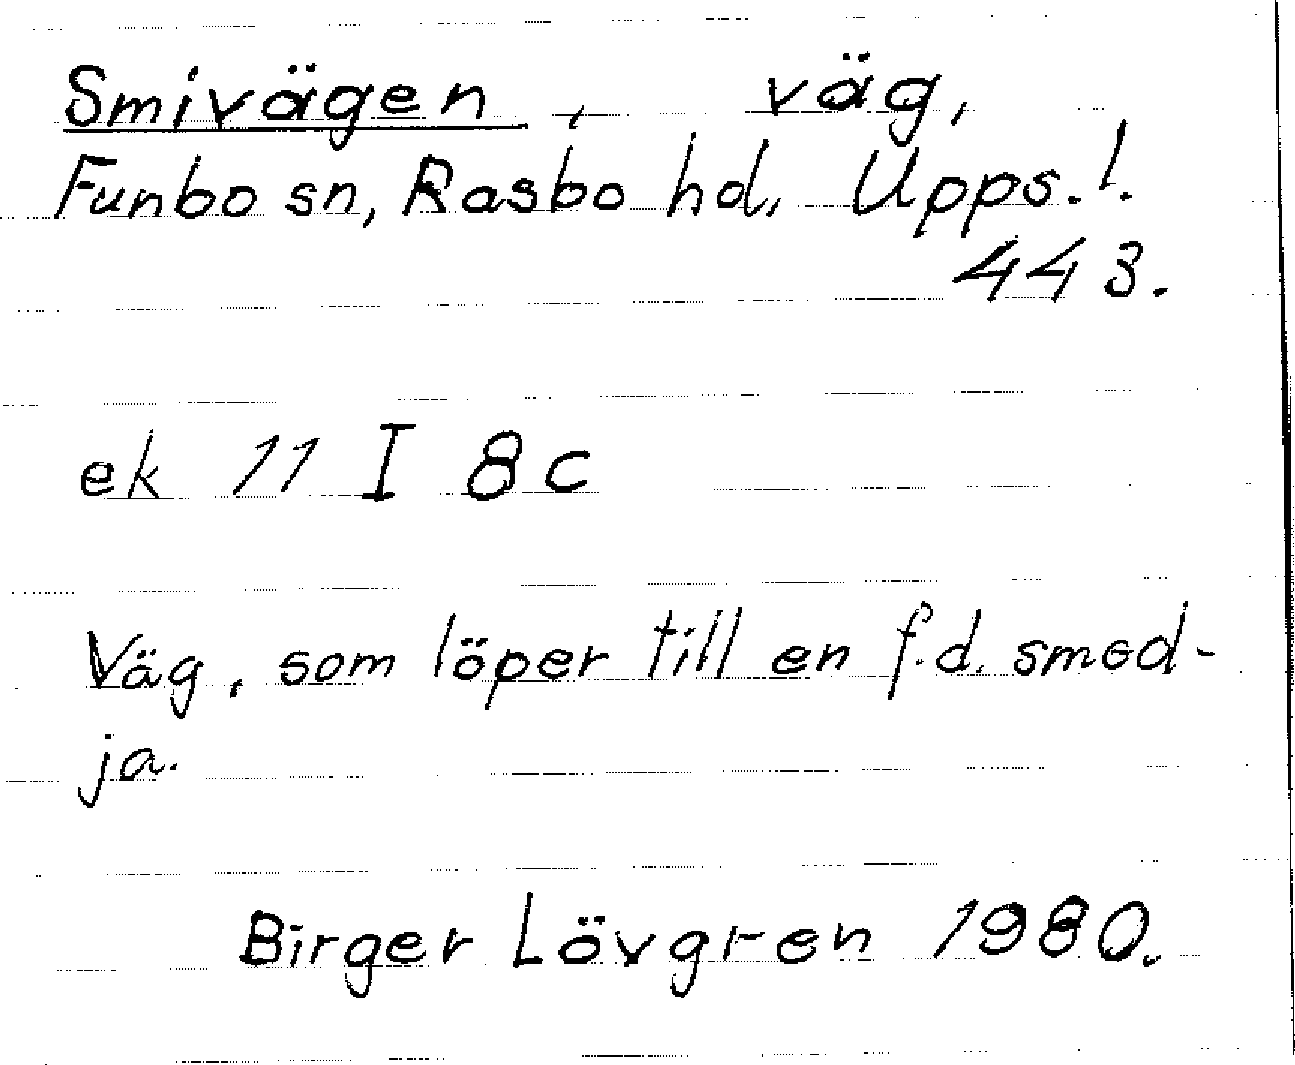 Smivägen, väg,
Funbo sn, Rasbo hd, Upps. l.
443.
ek 11 I 8c
Väg, som löper till en f.d. smed-
ja.
Birger Lövgren 1980.